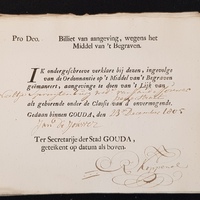 Pro Deo. Billiet van aangeving, wegens het
Middel van 't Begraven.
IK ondergeschreven verklare bij dezen, ingevolge
van de Ordonnantie op 't Middel van 't Begraven
geëmaneert, aangevinge te doen van 't Lijk van
als gehorende onder de Classis van 4 onvermogende.
Gedaan binnen GOUDA, den 13 December 1805
Ter Secretarije der Stad GOUDA,
geteekent op datum als boven.